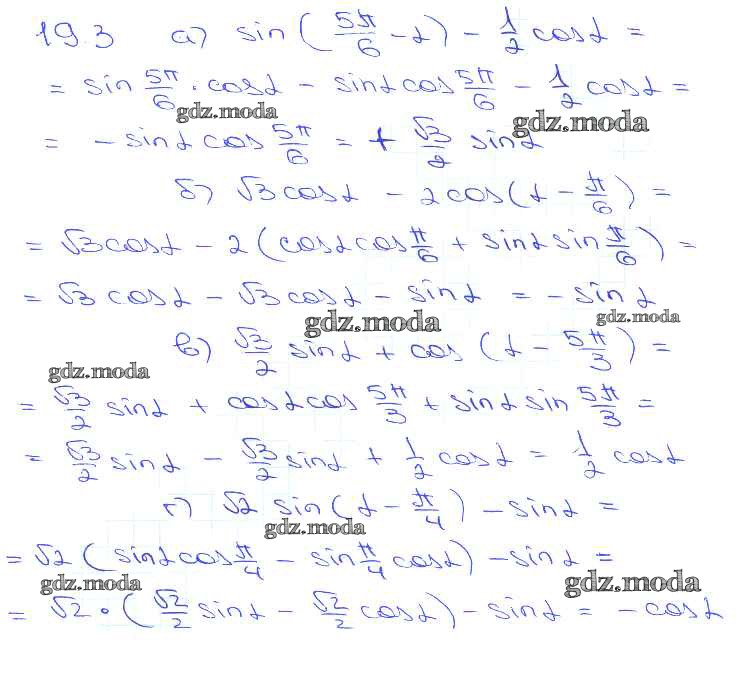 19.3 а) sin(5π/6 - α) - 1/2 cosα =
= sin 5π/6 · cosα - sinα cos 5π/6 - 1/2 cosα =
gdz.moda
gdz.moda
= - sinα cos 5π/6 = + √3/2 sinα
б) √3 cosα - 2cos(α - π/6) =
= √3 cosα - 2(cosα cos π/6 + sinα sin π/6) =
= √3 cosα - √3 cosα - sinα = - sinα
gdz.moda
gdz.moda
в) √3/2 sinα + cos(α - 5π/3) =
gdz.moda
= √3/2 sinα + cosα cos 5π/3 + sinα sin 5π/3 =
= √3/2 sinα - √3/2 sinα + 1/2 cosα = 1/2 cosα
г) √2 sin(α - π/4) - sinα =
gdz.moda
= √2 (sinα cos π/4 - sin π/4 cosα) - sinα =
gdz.moda
gdz.moda
= √2 · (√2/2 sinα - √2/2 cosα) - sinα = - cosα